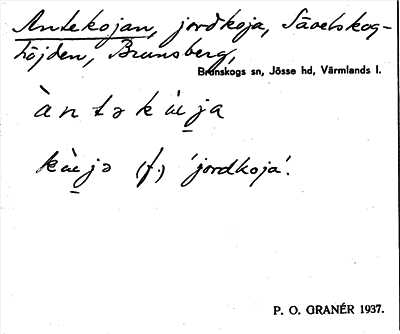 Antekojan, jordkoja, Sävelskog-
höjden, Brunsberg,
Brunskogs sn, Jösse hd, Värmlands l.
àntəkɯ̀ja
kɯ̀jə (f.) 'jordkoja'.
P. O. GRANÉR 1937.